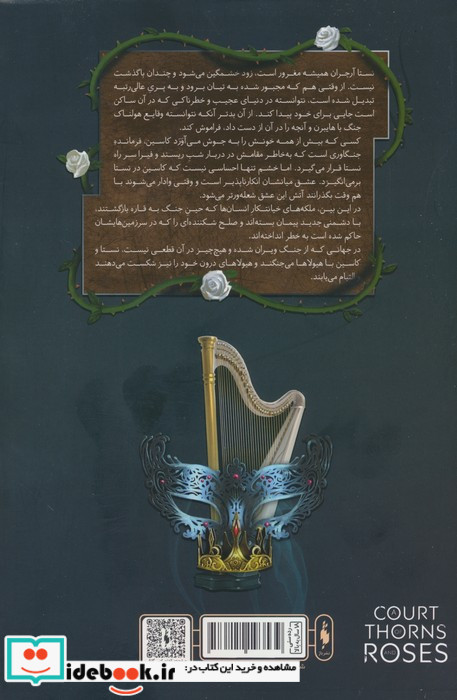 نستا آرچران همیشه مغرور است، زود خشمگین می‌شود و چندان باگذشت
نیست. از وقتی هم که مجبور شده به تیان برود و به پری عالی‌رتبه
تبدیل شده است، نتوانسته در دنیای عجیب و خطرناکی که در آن ساکن
است جایی برای خود پیدا کند. از آن بدتر آنکه نتوانسته وقایع هولناک
جنگ با هایبرن و آنچه را در آن از دست داد، فراموش کند.
کسی که بیش از همه خونش را به جوش می‌آوَرَد کاسین، فرمانده‌ٔ
جنگاوری است که به‌خاطر مقامش در دربار شب ریسند و فیرا سر راه
نستا قرار می‌گیرد. اما خشم تنها احساسی نیست که کاسین در نستا
برمی‌انگیزد. عشق میانشان انکارناپذیر است و وقتی وادار می‌شوند با
هم وقت بگذرانند آتش این عشق شعله‌ورتر می‌شود.
در این بین، ملکه‌های خیانتکار انسان‌ها که حین جنگ به قاره بازگشتند،
با دشمنی جدید پیمان بسته‌اند و صلح شکننده‌ای را که در سرزمین‌هایشان
حاکم شده است به خطر انداخته‌اند.
در جهانی که از جنگ ویران شده و هیچ‌چیز در آن قطعی نیست، نستا و
کاسین با هیولاها می‌جنگند و هیولاهای درون خود را نیز شکست می‌دهند
و التیام می‌یابند.
A
COURT
OF
THORNS
AND
ROSES
رده سنی
۱۸ سال به بالا
مشاهده و خرید این کتاب در:
iidebook.ir